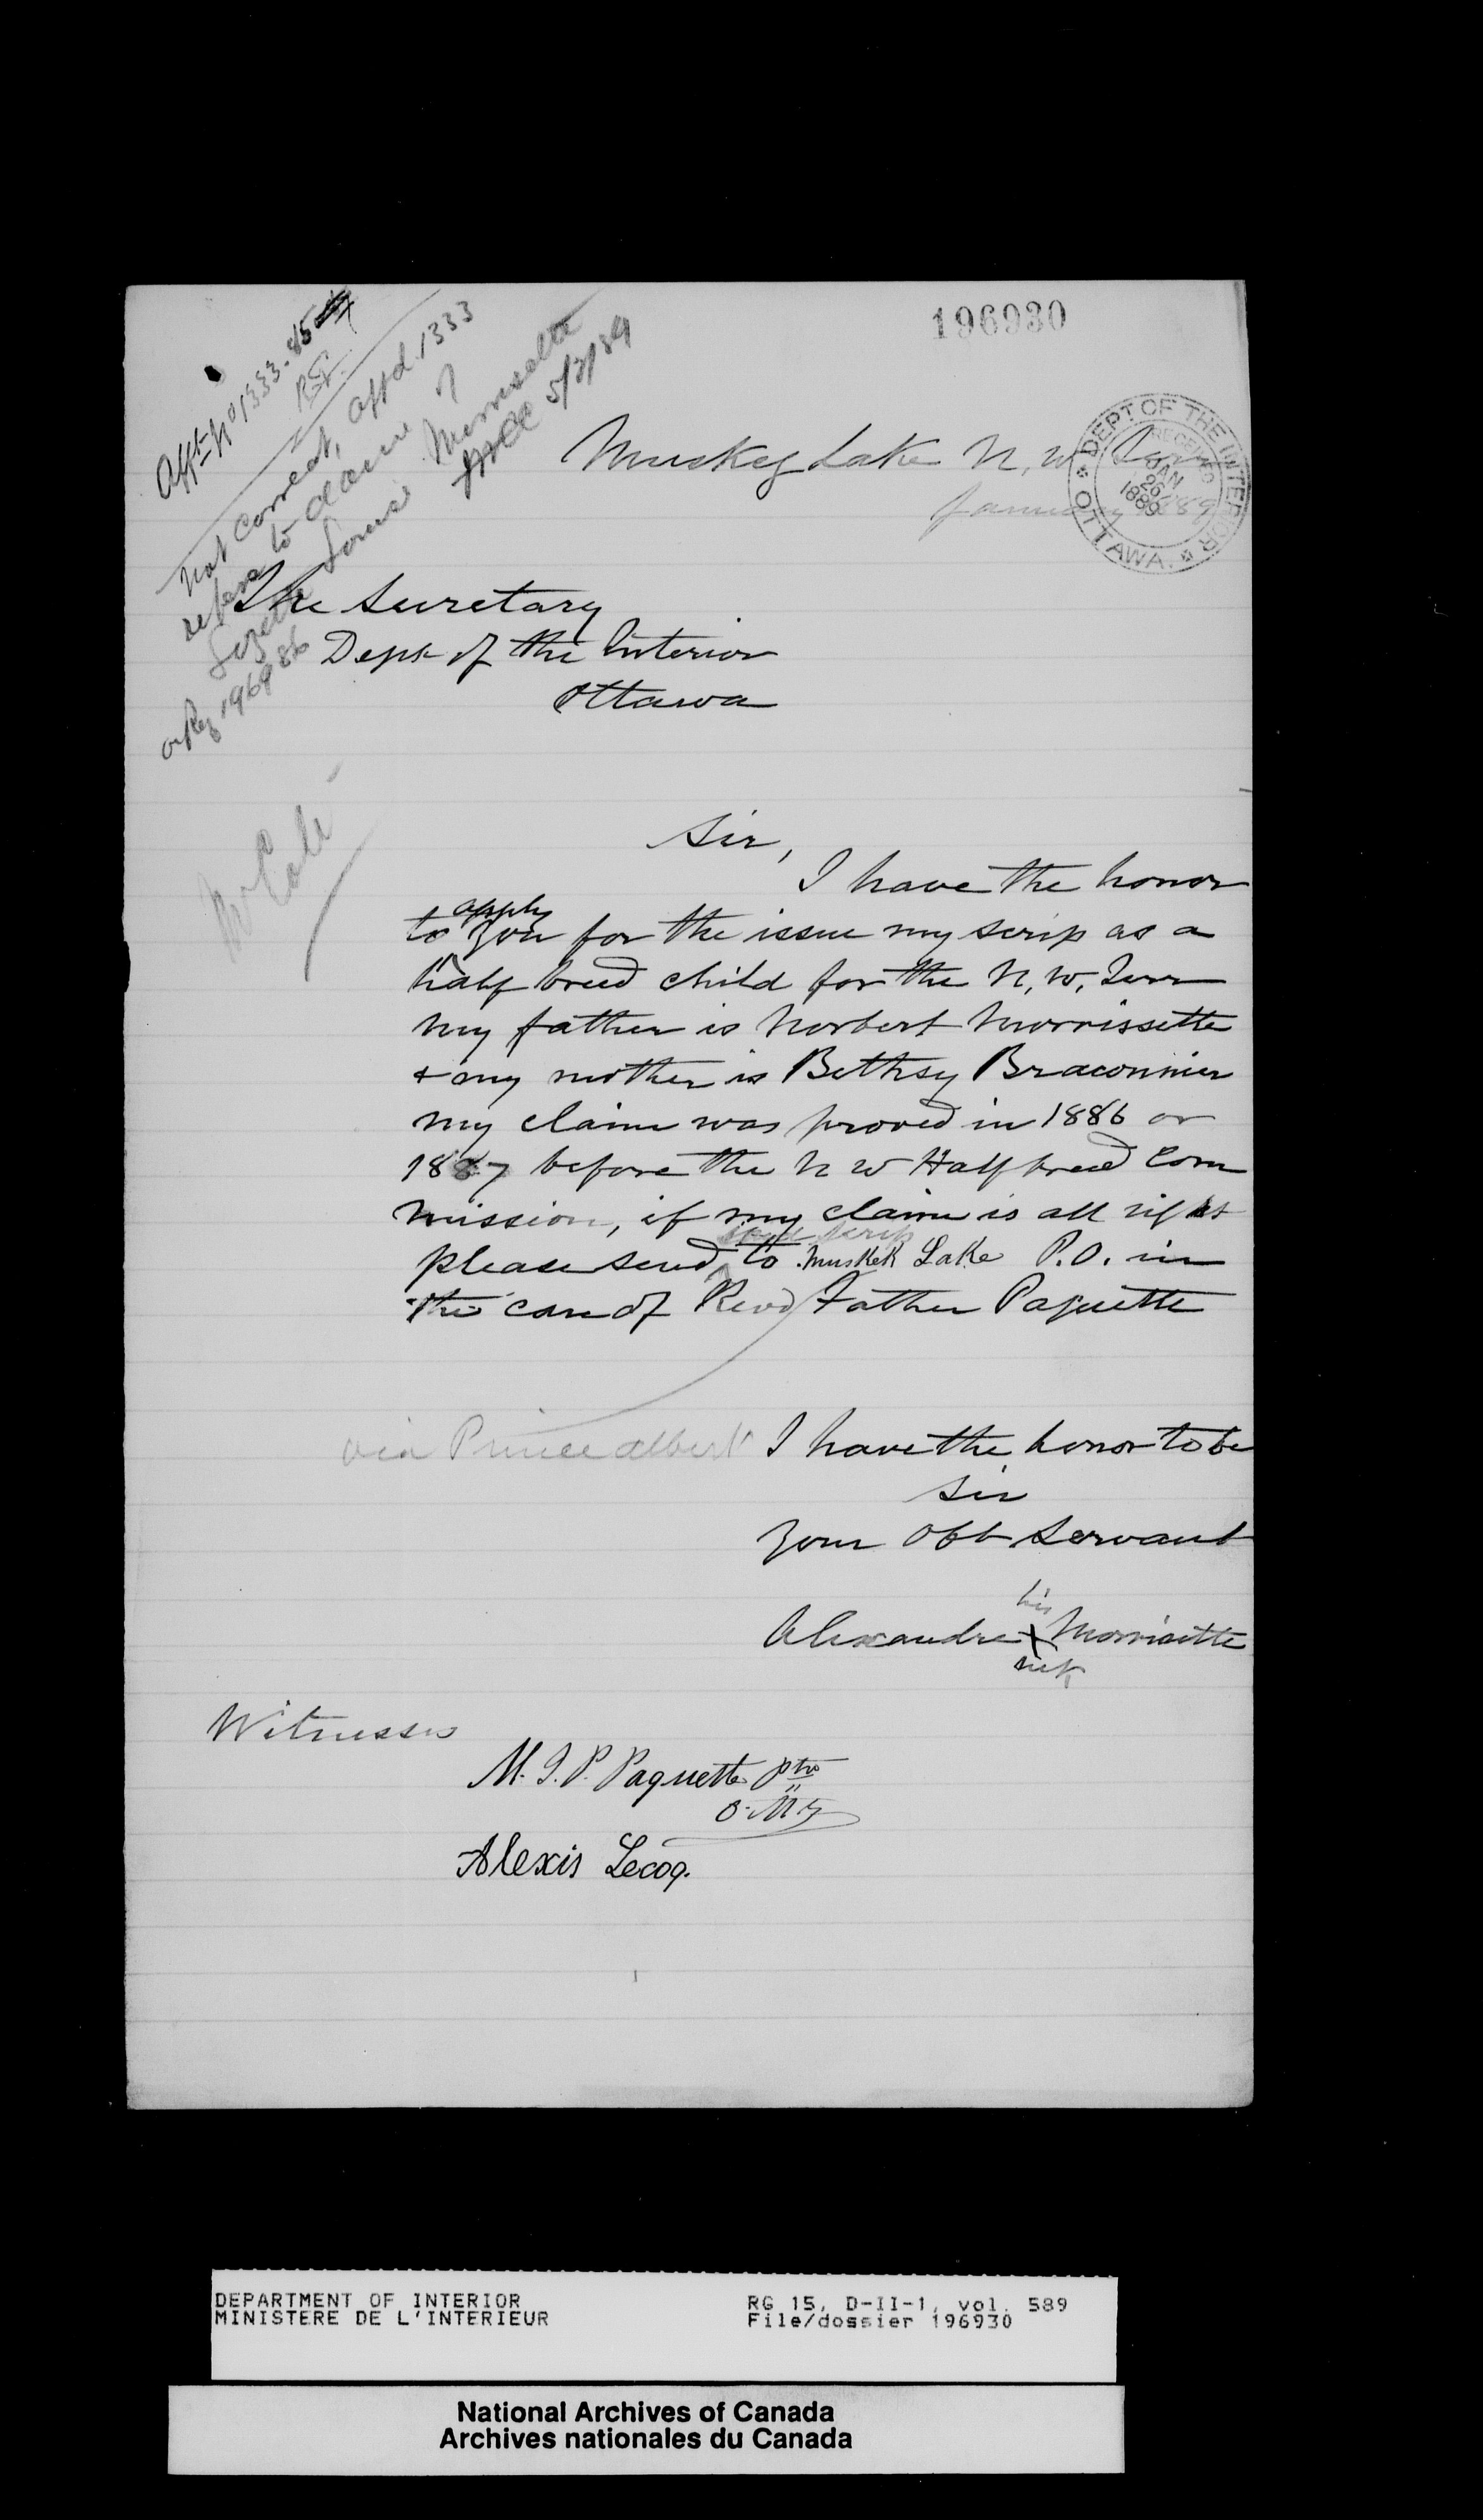 196930
Afft No 1333.85
Not correct, affd. 1333
refers to claim of
Louise Morrissette
5/3/89
on Reg 196986
Muskeg Lake N. W. Terr
January 1889
DEPT OF THE INTERIOR
RECEIVED
JAN
26
1889
OTTAWA.
The Secretary
Dept of the Interior
Ottawa
Sir,
I have the honor
to apply you for the issue my scrip as a
half breed child for the N. W. Terr
my father is Norbert Morrissette
& my mother is Bethsy Braconnier
my claim was proved in 1886 or
1887 before the N W Half breed Com
mission, if my claim is all right
please send said scrip to Muskek Lake P.O. in
the care of Revd Father Paquette
via Prince Albert
I have the honor to be
Sir
Your Obt Servant
his
Alexandre X Morrisette
mk
Witnesses
M. J. P. Paquette ptre
O. M I
Alexis Lecoq.
DEPARTMENT OF INTERIOR
MINISTERE DE L'INTERIEUR
RG 15, D-II-1, vol. 589
File/dossier 196930
National Archives of Canada
Archives nationales du Canada